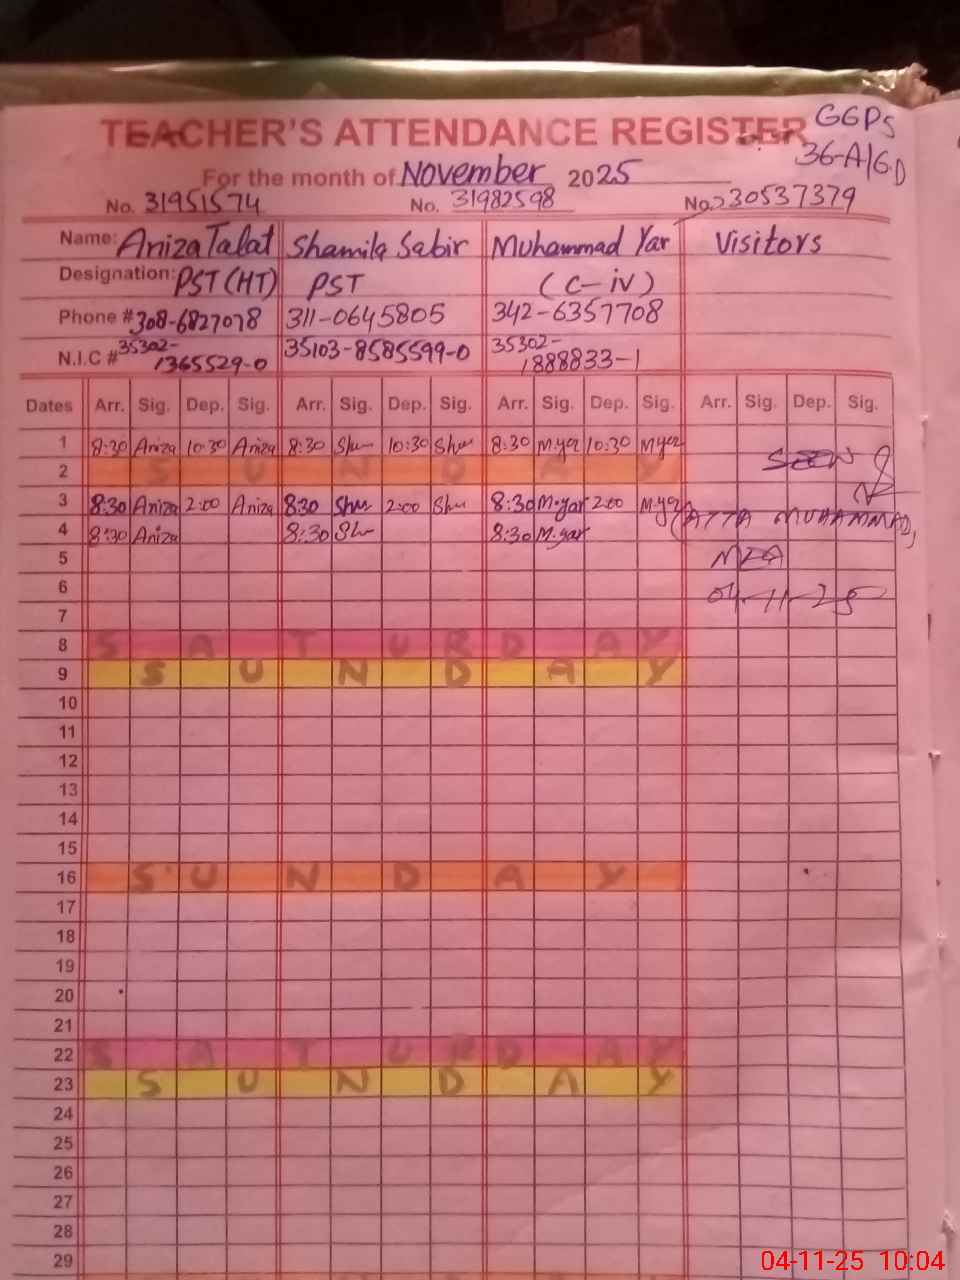 GGPS
TEACHER'S ATTENDANCE REGISTER
36-A/6.D
For the month of November 2025
No. 31951574 No. 31982598 No. 230537379
Name: Aniza Talat Shamila Sabir Muhammad Yar Visitors
Designation: PST (HT) PST (C-iv)
Phone # 308-6827078 311-0645805 342-6357708
N.I.C # 35302-1365529-0 35103-8585599-0 35302-1888833-1
Dates Arr. Sig. Dep. Sig. Arr. Sig. Dep. Sig. Arr. Sig. Dep. Sig. Arr. Sig. Dep. Sig.
1 8:30 Aniza 10:30 Aniza 8:30 10:30 8:30 M.yar 10:30 M.yar
2 SUNDAY SEEN
3 8:30 Aniza 2:00 Aniza 8:30 2:00 8:30 M.yar 2:00 M.yar
(ATTA MUHAMMAD,
4 8:30 Aniza 8:30 8:30 M.yar
5
6 04-11-25
7
8 SATURDAY
9 SUNDAY
10
11
12
13
14
15
16 SUNDAY
17
18
19
20
21
22 SATURDAY
23 SUNDAY
24
25
26
27
28
29
04-11-25 10:04